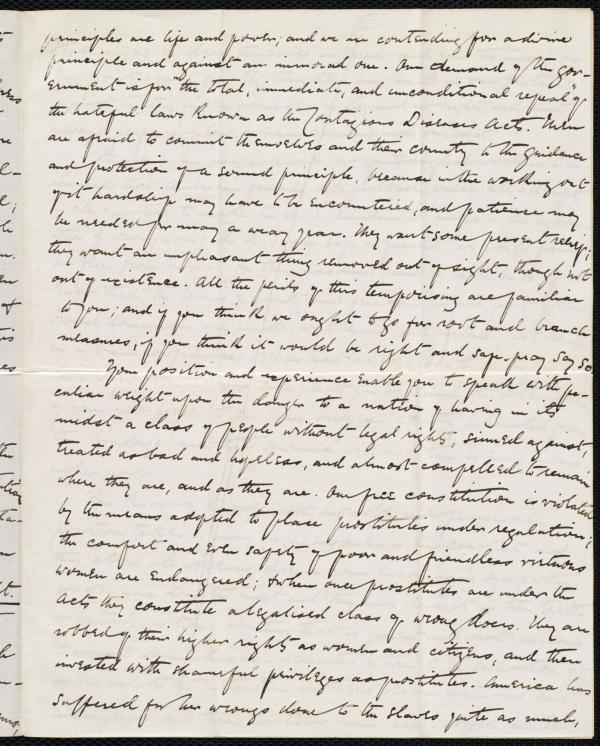 principles are life and power; and we are contending for a divine
principle and against an immoral one. Our demand of the gov-
ernment is for "the total, immediate, and unconditional repeal" of
the hateful laws known as the Contagious Diseases Acts. Men
are afraid to commit themselves and their country to the guidance
and protection of a sound principle, because in the working out
of it hardship may have to be encountered, and patience may
be needed for many a weary year. They want some present relief;
they want an unpleasant thing removed out of sight, though not
out of existence. All the perils of this temporising are familiar
to you; and if you think we ought to go for root and branch
measures, if you think it would be right and safe, pray say so.
Your position and experience enable you to speak with pe-
culiar weight upon the danger to a nation of having in its
midst a class of people without legal rights, sinned against,
treated as bad and hopeless, and almost compelled to remain
where they are, and as they are. Our free constitution is violated
by the means adopted to place prostitutes under regulation;
the comfort and even safety of poor and friendless virtuous
women are endangered; & when once prostitutes are under the
Acts they constitute a legalised class of wrong doers. They are
robbed of their higher rights as women and citizens, and then
invested with shameful privileges as prostitutes. America has
suffered for her wrongs done to the slaves quite as much,